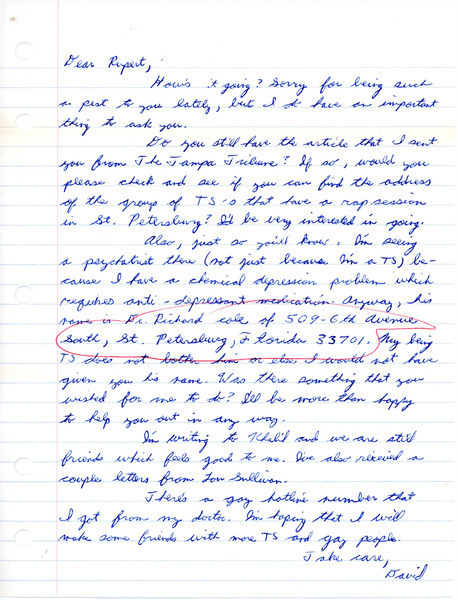 Dear Rupert,
How's it going? Sorry for being such
a pest to you lately, but I d' have an important
thing to ask you.
Do you still have the article that I sent
you from The Tampa Tribune? If so, would you
please check and see if you can find the address
of the group of TS-s that have a rap session
in St. Petersburg? I'd be very interested in going.
Also, just so you'll know. I'm seeing
a psychatrist there (not just because I'm a TS) be-
cause I have a chemical depression problem which
requires anti-depressant medication. Anyway, his
name is Dr. Richard Cole of 509-6th Avenue
South, St. Petersburg, Florida 33701. My being
TS does not bother him or else I would not have
given you his name. Was there something that you
wished for me to do? I'll be more than happy
to help you out in any way.
I'm writing to Khalil and we are still
friends which feels good to me. I've also received a
couple letters from Lou Sullivan.
There's a gay hotline number that
I got from my doctor. I'm hoping that I will
make some friends with more TS and gay people.
Take care,
David